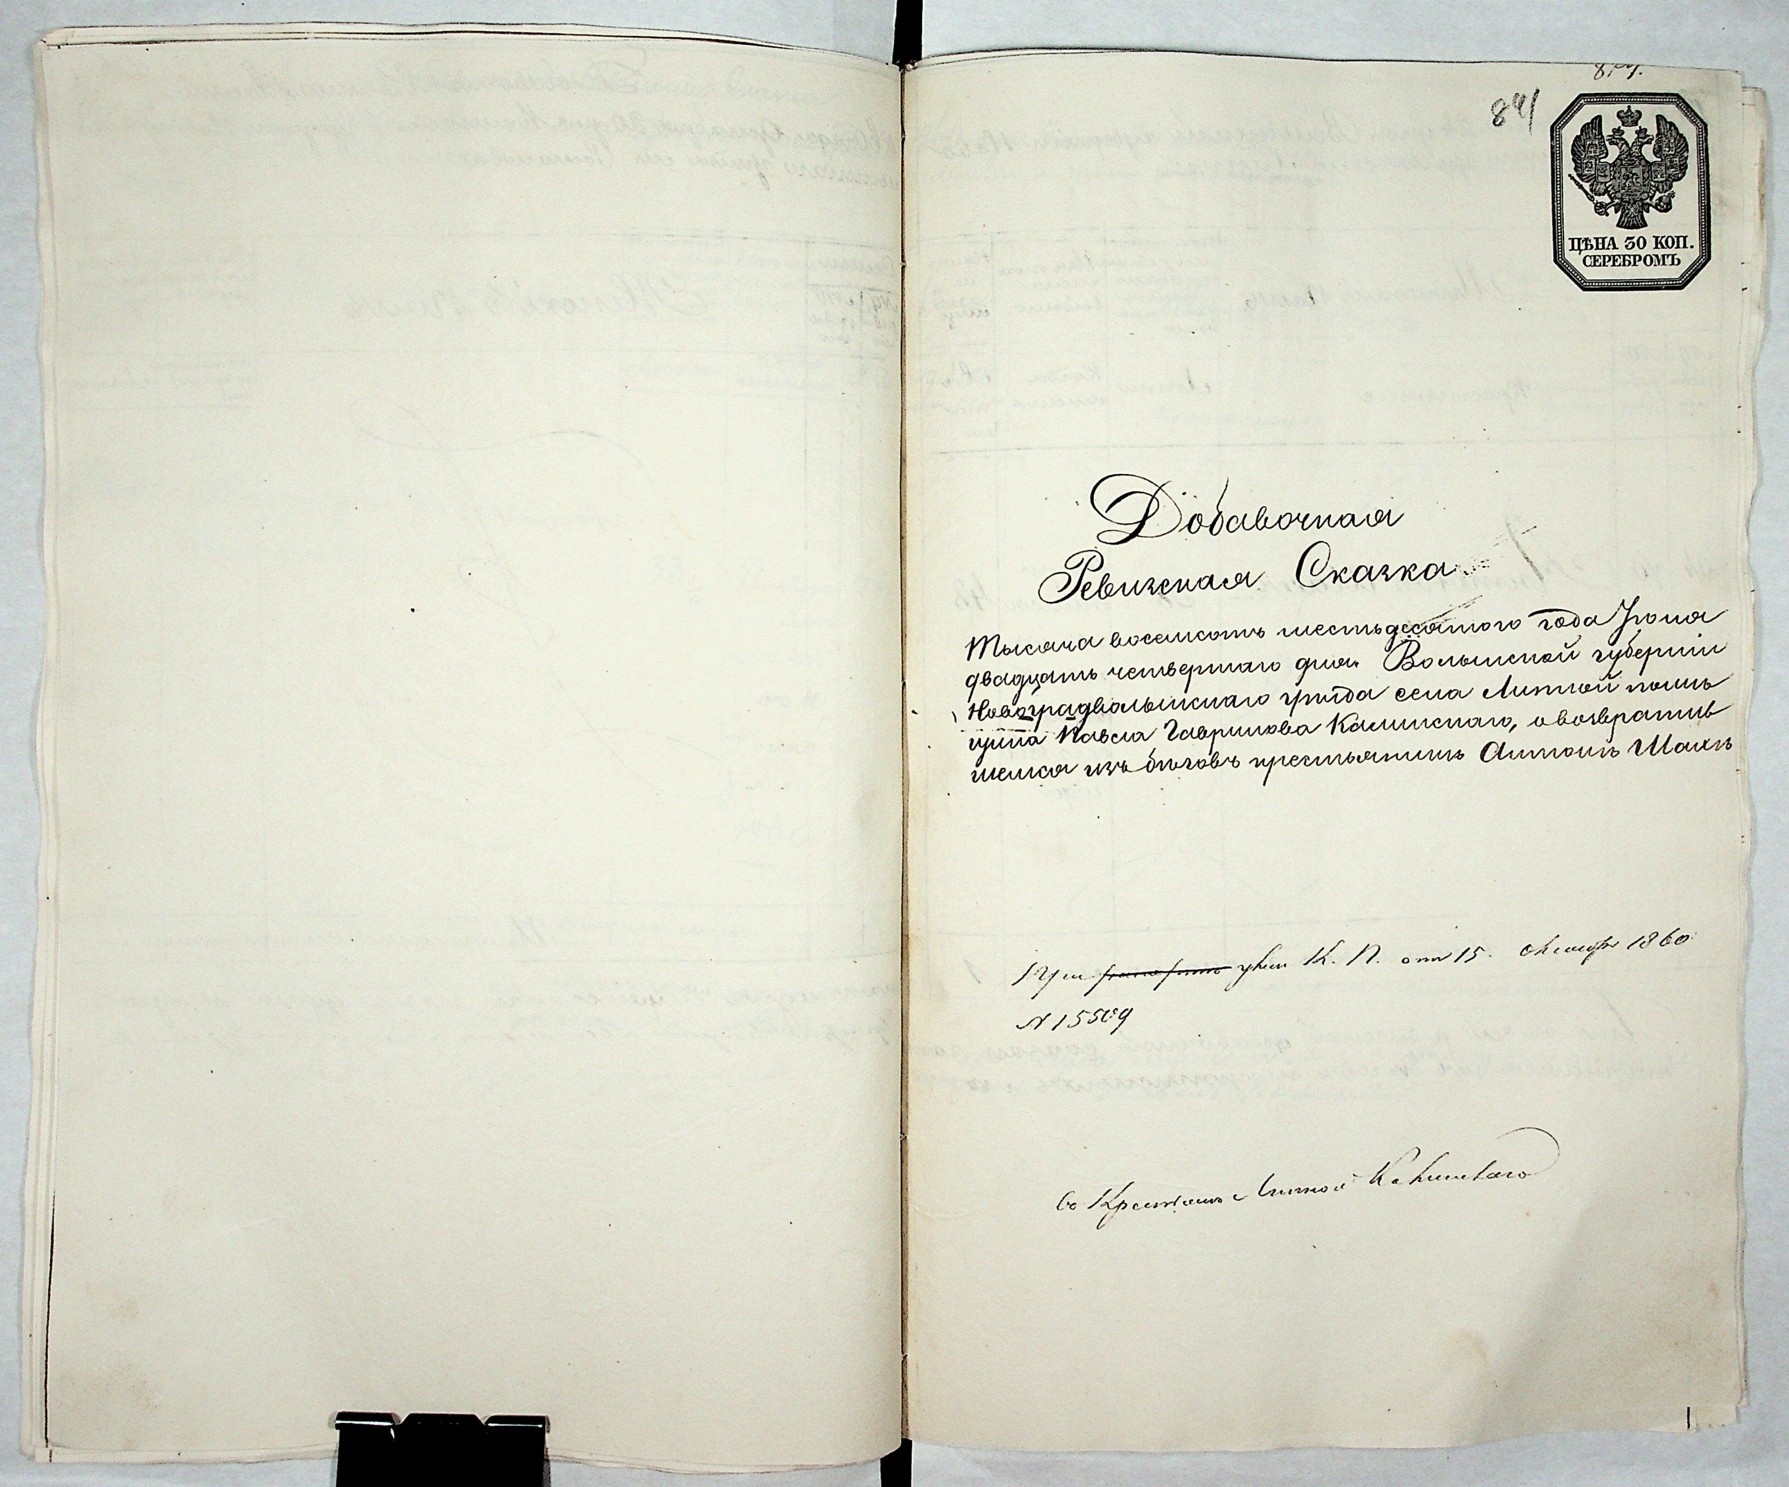 841
ЦѢНА 30 КОП.
СЕРЕБРОМЪ
Добавочная
Ревизская Сказка
Тысяча восемсотъ шестьдесятого года Іюня
двадцать четвертаго дня. Волынской губерніи
Новоградволынскаго уѣзда села Липной помѣ
щика Павла Гаврилова Калинскаго, о возвратив
шемся изъ бѣговъ крестьянинѣ Антонѣ Шахъ
При указѣ К. П. отъ 15. октября 1860
№ 15509